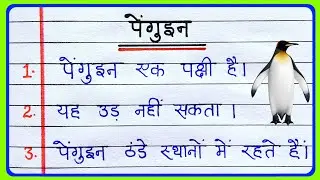 पेंगुइन
1. पेंगुइन एक पक्षी है।
2. यह उड़ नहीं सकता।
3. पेंगुइन ठंडे स्थानों में रहते हैं।